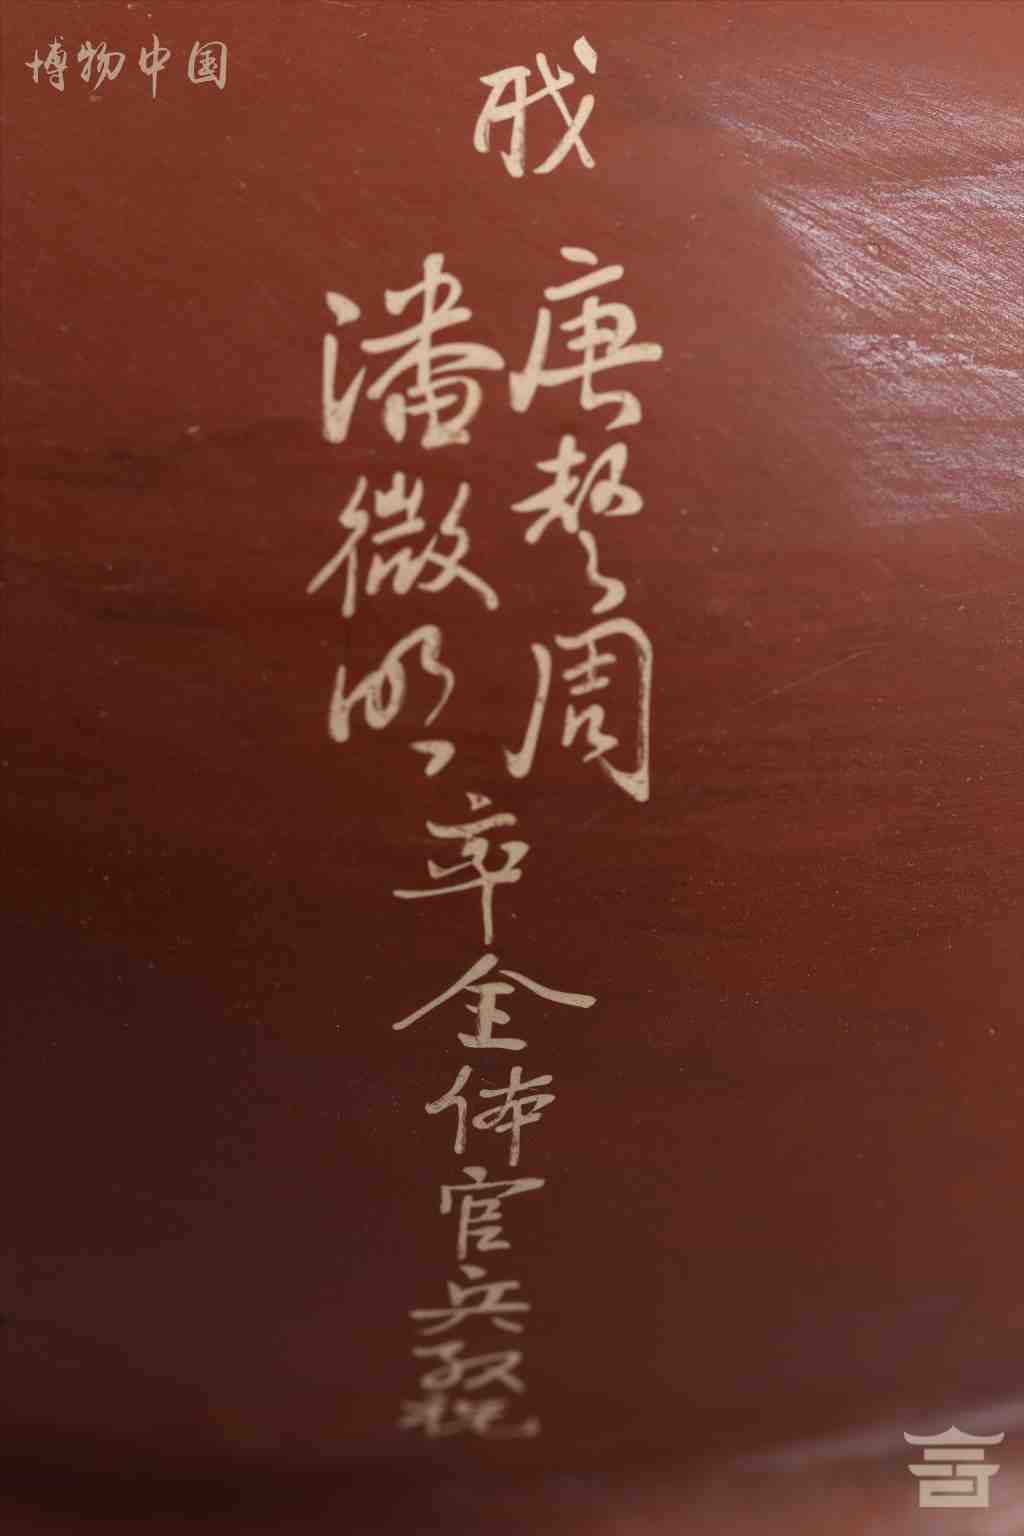 博物中国
唐 周
潘微明
率全体官兵敬祝